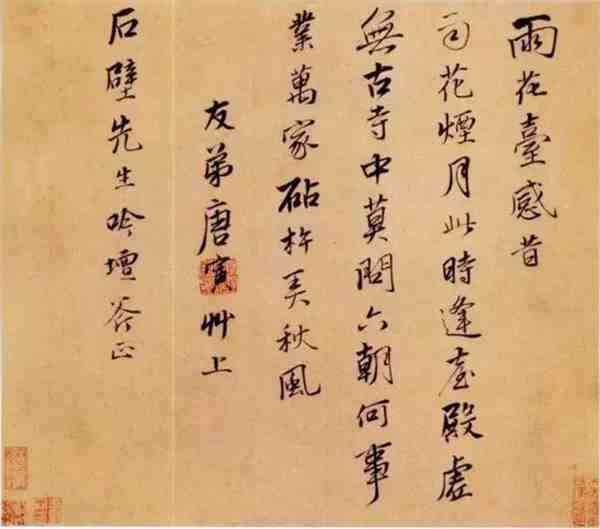 雨花臺感昔
司花煙月此時逢臺殿虛
無古寺中莫問六朝何事
業萬家砧杵秋風
友弟唐寅艸上
石壁先生吟壇正